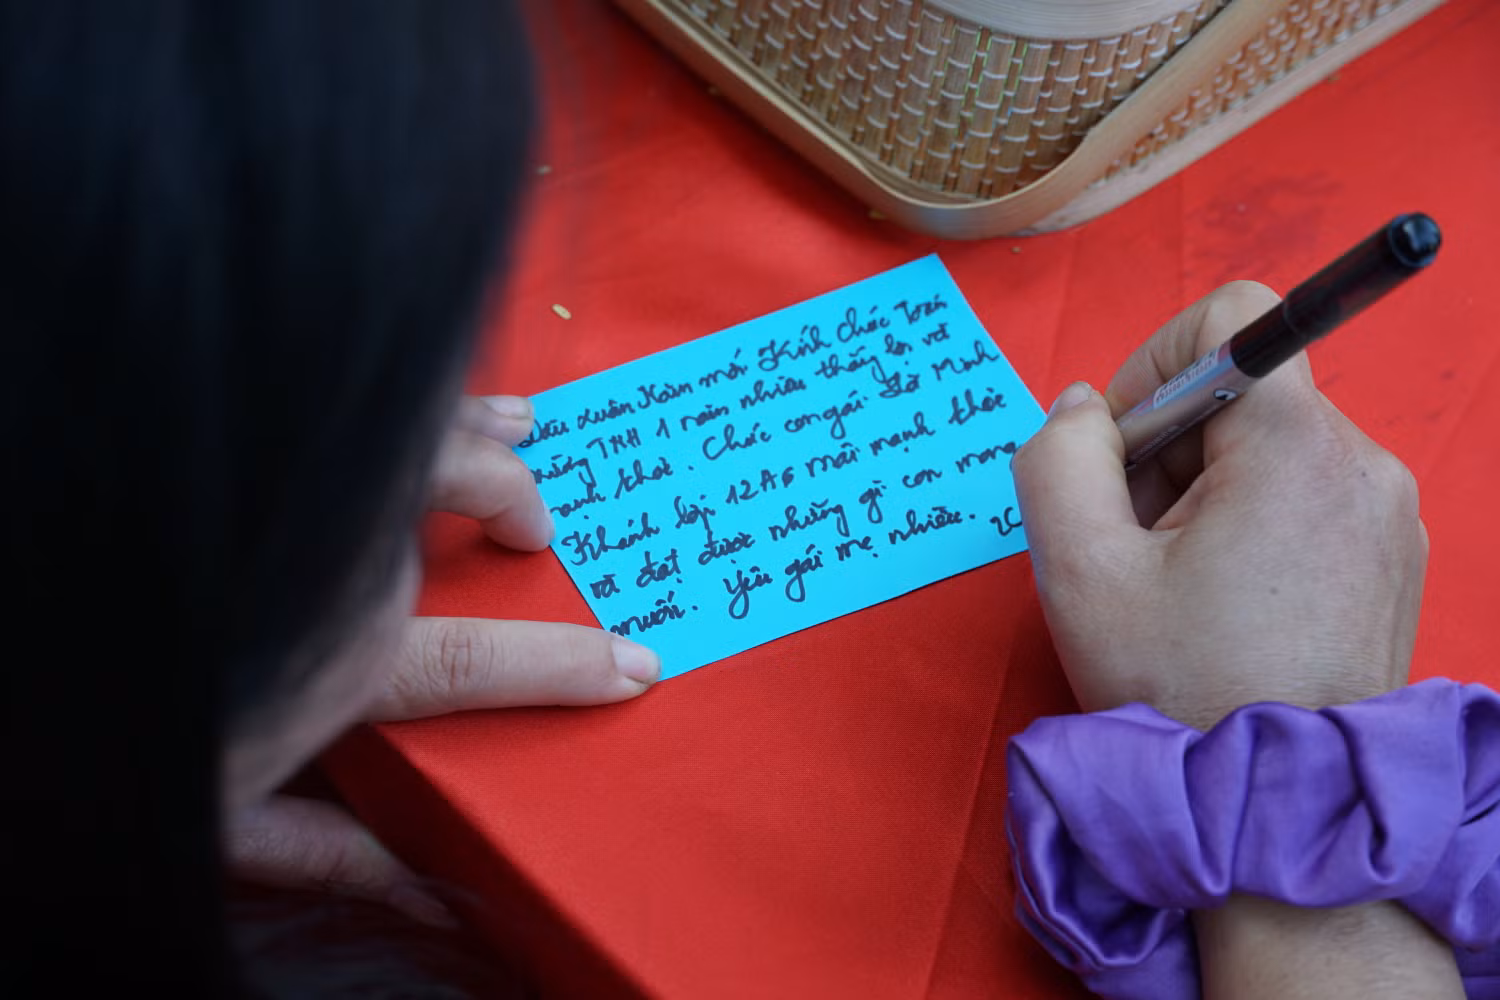 Đầu xuân Năm mới Kính chúc Toàn
trường THH 1 năm nhiều thắng lợi và
mạnh khoẻ. Chúc con gái Minh
Khánh lớp 12A6 mãi mạnh khoẻ
và đạt được những gì con mong
muốn. Yêu gái mẹ nhiều.